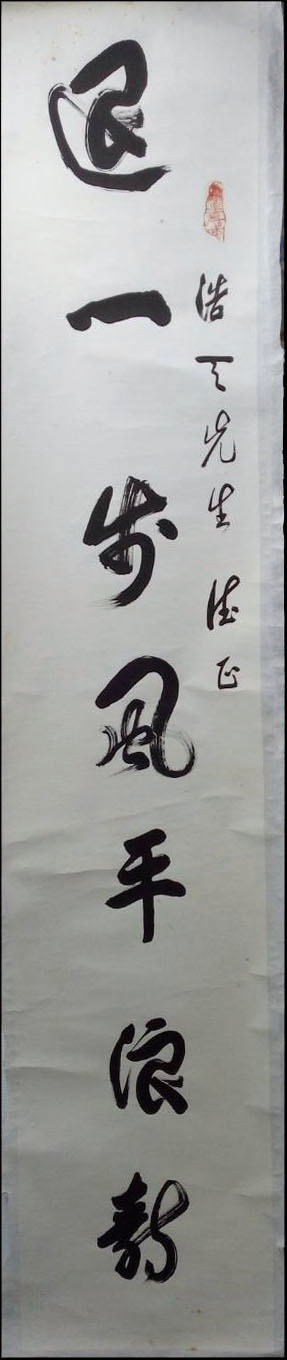 浩天先生 法正
退一步風平浪靜